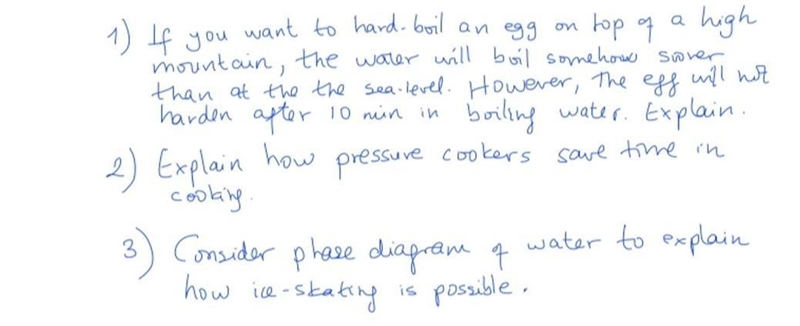 1) If you want to hard-boil an egg on top of a high
mountain, the water will boil somehow sooner
than at the the sea-level. However, the egg will not
harden after 10 min in boiling water. Explain.
2) Explain how pressure cookers save time in
cooking.
3) Consider phase diagram of water to explain
how ice-skating is possible.